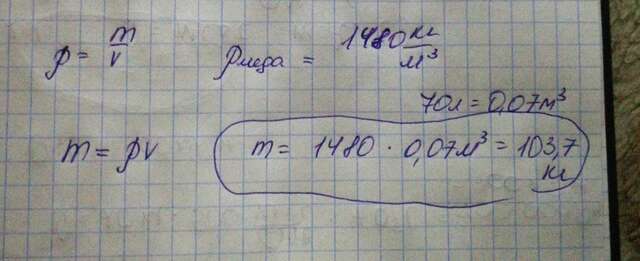 ρ = m/v
ρмеда = 1480 кг/м³
70л = 0,07м³
m = ρv
m = 1480 · 0,07м³ = 103,7 кг